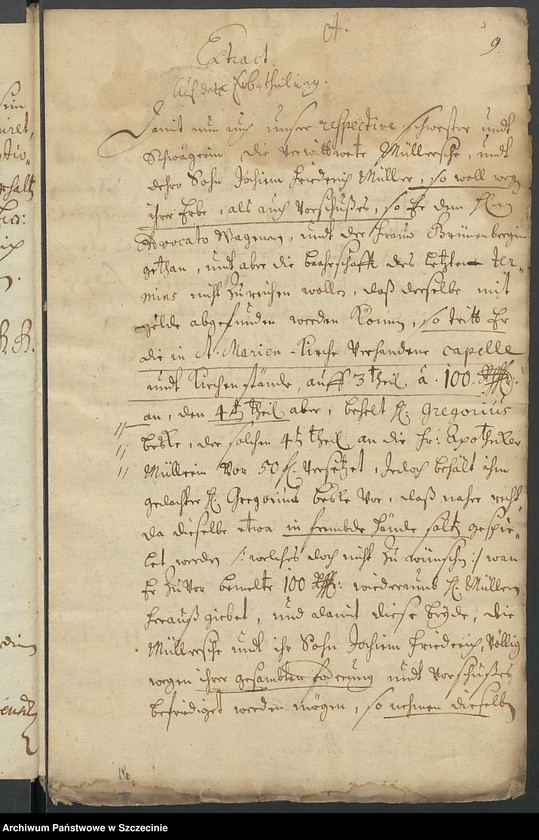 A.
9.
Extract.
Auß der Erbtheilung.
Damit nun auch unser respective Schwester undt
Schwägerin, die verwittwete Müllersche, undt
dehro Sohn Jochim Friederich Müller, so woll wegen
ihrer Erbe, als auch Vorschußes, so Er dem Hern
Advocato Wagman, undt der Frauw Brünenbergin
gethan, undt aber die bahrschafft des letzten Ter-
mins nicht zureichen wollen, daß derselbe mit
gelde abgefunden werden können, so tritt Er
die in St. Marien-Kirche verhandene Capelle
undt Kirchenstände, auff 3 theil, â 100
an, den 4ten theil aber, behelt H. Gregorius
beßke, der solchen 4ten theil an die Fr: Apotheker
Müllerin vor 50 fl. versetzet, Jedoch behält ihm
gedachter H. Gregorius beßke vor, daß
da dieselbe etwa in frembde hände solte gespie-
let werden /: welches doch nicht zu wünschen :/ wan
Er zuvor bemelte 100 wiederumb H. Müllern
herauß giebet, und damit diese beyde, die
Müllersche undt ihr Sohn Jochim Friederich, völlig
wegen ihrer gesambten foderung undt Vorschußes
befriediget werden mögen, so nehmen dieselben
Archiwum Państwowe w Szczecinie